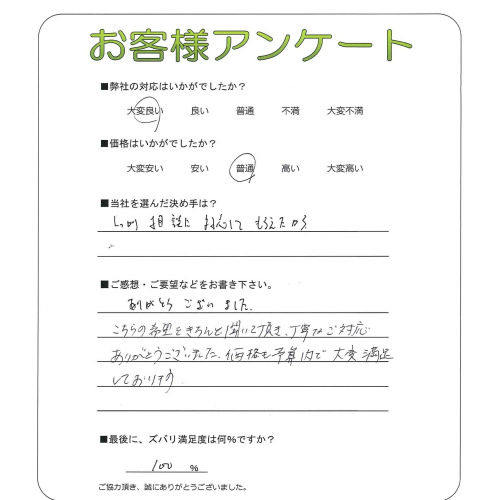 お客様アンケート
■弊社の対応はいかがでしたか?
大変良い 良い 普通 不満 大変不満
■価格はいかがでしたか?
大変安い 安い 普通 高い 大変高い
■当社を選んだ決め手は?
しっかり 相談に 対応して もらえたから
■ご感想・ご要望などをお書き下さい。
ありがとう ございました。
こちらの希望をきちんと聞いて頂き、丁寧なご対応
ありがとうございました。価格も予算内で大変満足
しております。
■最後に、ズバリ満足度は何%ですか?
100 %
ご協力頂き、誠にありがとうございました。